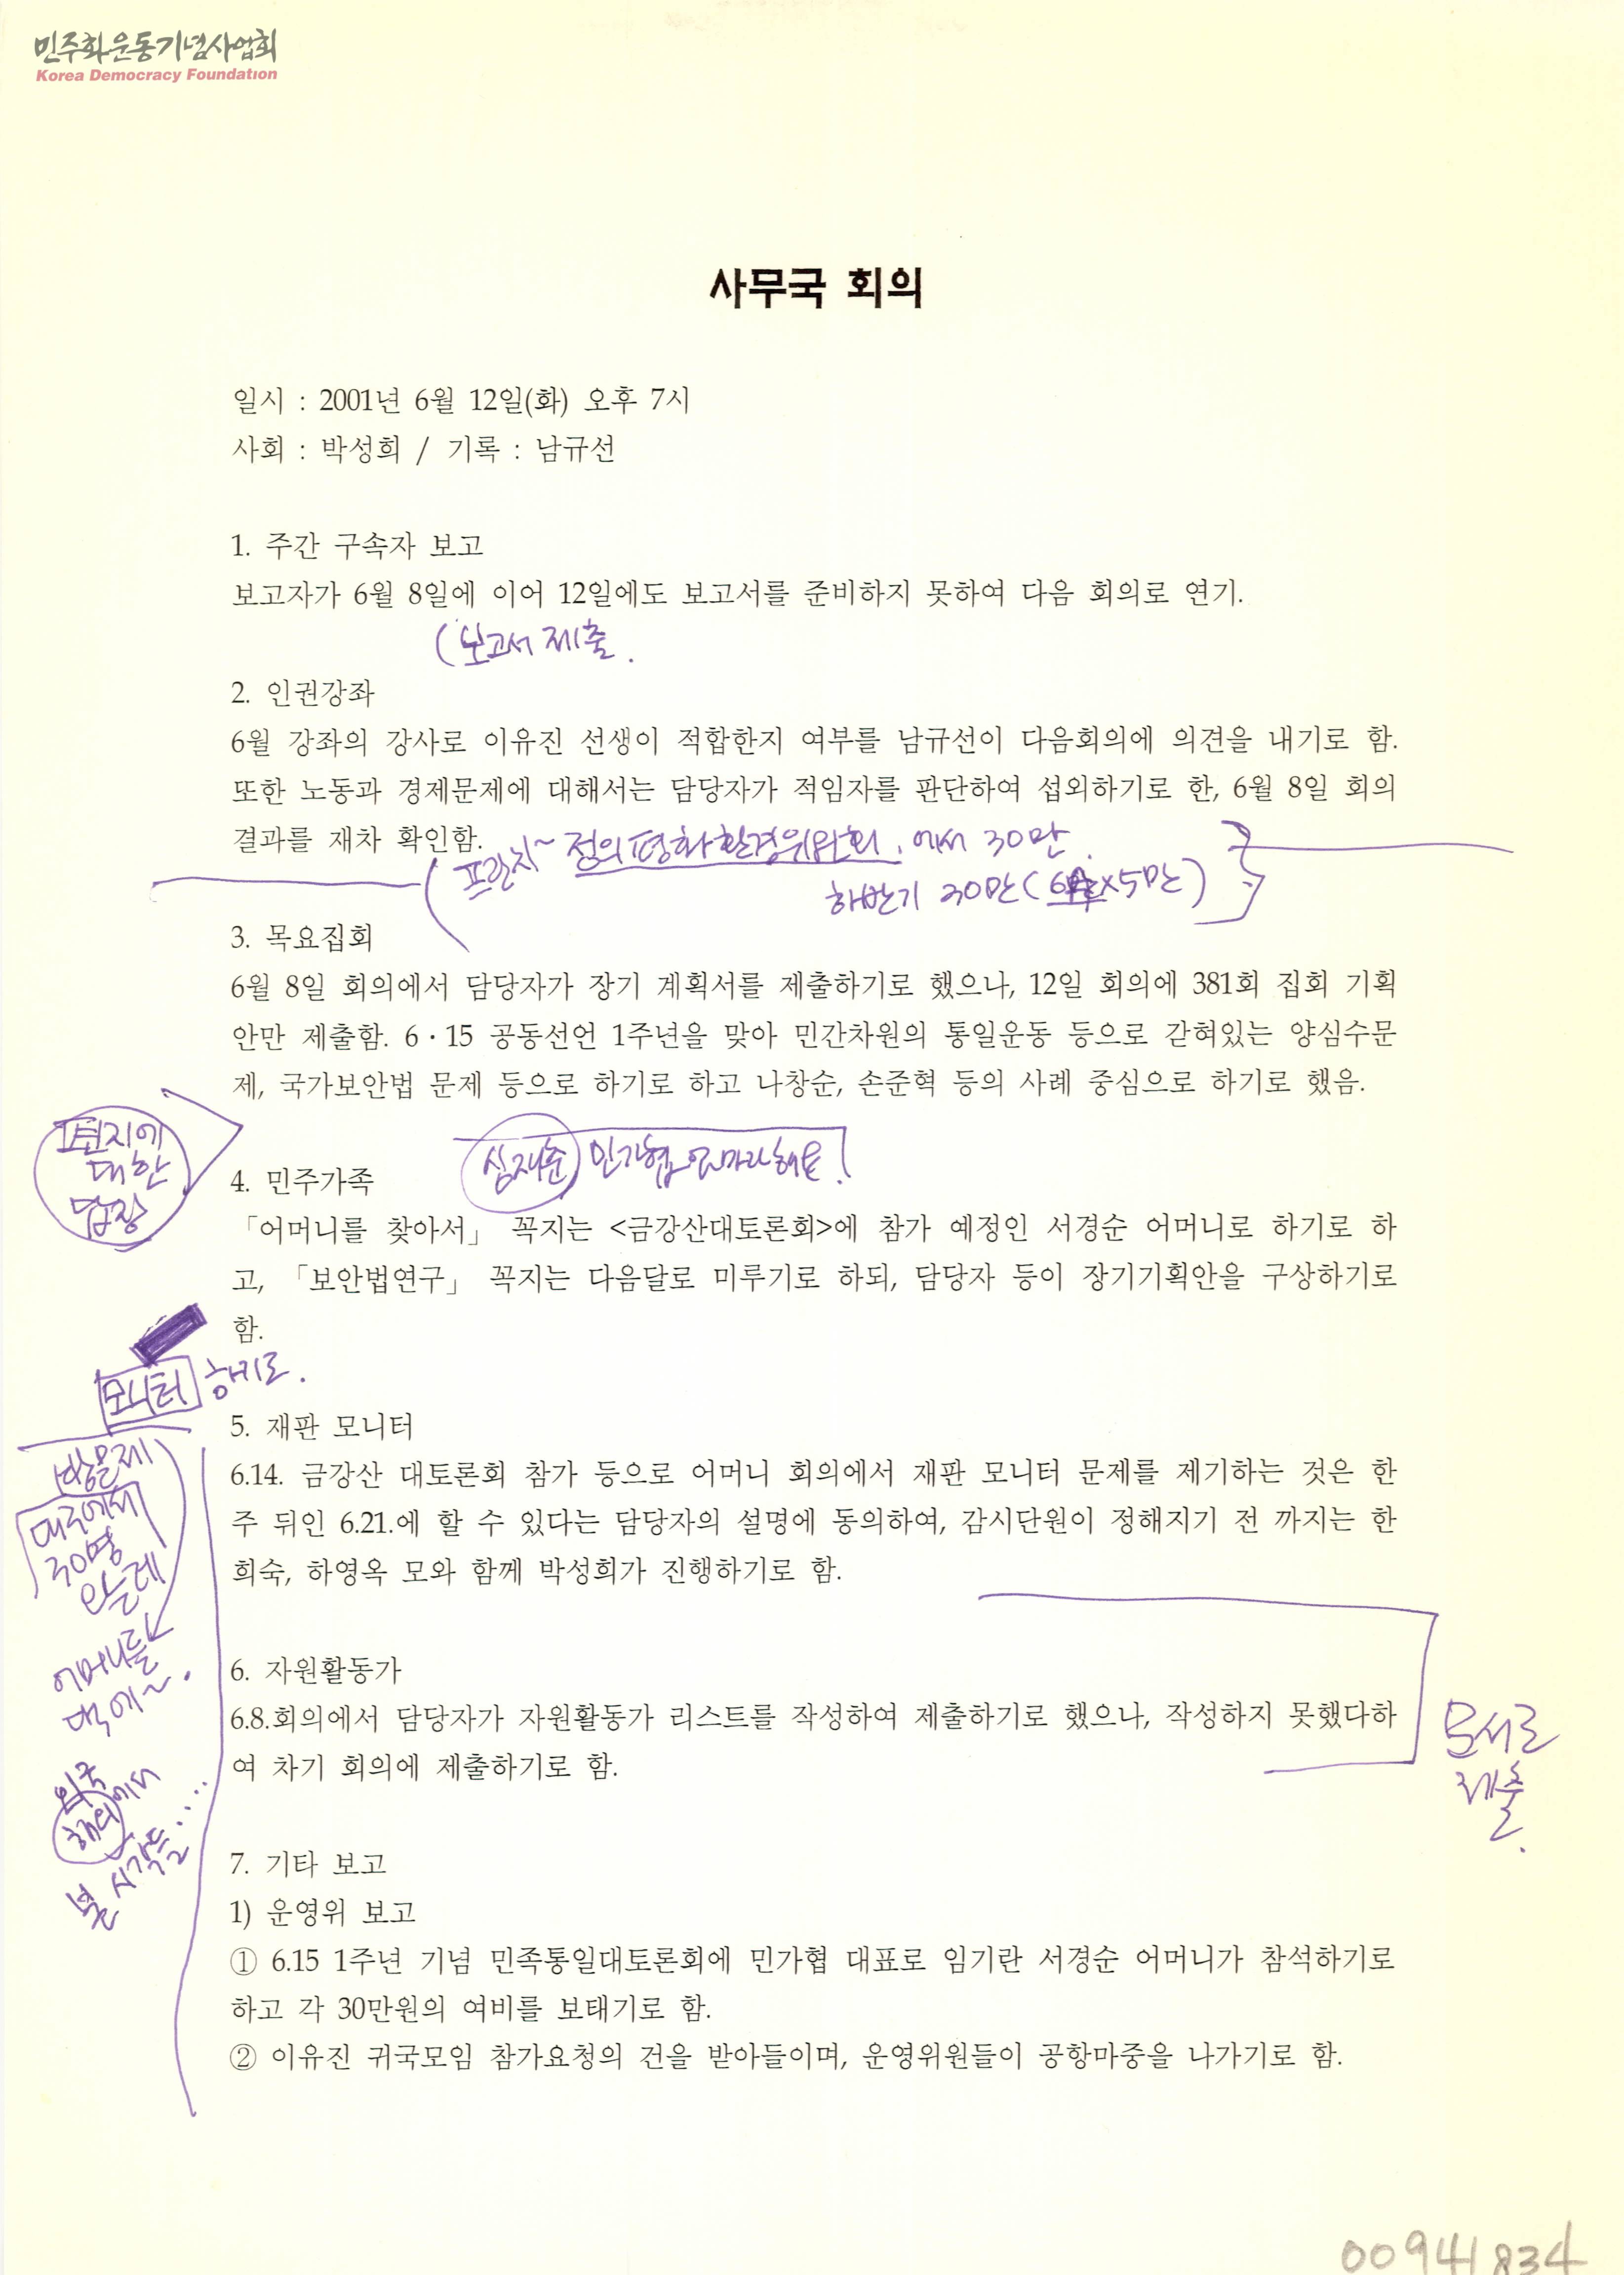 민주화운동기념사업회
Korea Democracy Foundation
사무국 회의
일시 : 2001년 6월 12일(화) 오후 7시
사회 : 박성희 / 기록 : 남규선
1. 주간 구속자 보고
보고자가 6월 8일에 이어 12일에도 보고서를 준비하지 못하여 다음 회의로 연기.
(보고서 제출.
2. 인권강좌
6월 강좌의 강사로 이유진 선생이 적합한지 여부를 남규선이 다음회의에 의견을 내기로 함.
또한 노동과 경제문제에 대해서는 담당자가 적임자를 판단하여 섭외하기로 한, 6월 8일 회의
결과를 재차 확인함.
(프란치~ 정의평화환경위원회. 에서 30만
하반기 30만 ( ×5만)
3. 목요집회
6월 8일 회의에서 담당자가 장기 계획서를 제출하기로 했으나, 12일 회의에 381회 집회 기획
안만 제출함. 6·15 공동선언 1주년을 맞아 민간차원의 통일운동 등으로 갇혀있는 양심수문
제, 국가보안법 문제 등으로 하기로 하고 나창순, 손준혁 등의 사례 중심으로 하기로 했음.
대한
답장
심재춘 민가협
4. 민주가족
「어머니를 찾아서」 꼭지는 <금강산대토론회>에 참가 예정인 서경순 어머니로 하기로 하
고, 「보안법연구」 꼭지는 다음달로 미루기로 하되, 담당자 등이 장기기획안을 구상하기로
함.
모니터 하기로.
5. 재판 모니터
6.14. 금강산 대토론회 참가 등으로 어머니 회의에서 재판 모니터 문제를 제기하는 것은 한
주 뒤인 6.21.에 할 수 있다는 담당자의 설명에 동의하여, 감시단원이 정해지기 전 까지는 한
희숙, 하영옥 모와 함께 박성희가 진행하기로 함.
방문제
대구에서
30명
오는데
어머니들
댁에~.
외국
해외에서
볼 시각들.....
6. 자원활동가
6.8.회의에서 담당자가 자원활동가 리스트를 작성하여 제출하기로 했으나, 작성하지 못했다하
여 차기 회의에 제출하기로 함.
문서로
제출.
7. 기타 보고
1) 운영위 보고
① 6.15 1주년 기념 민족통일대토론회에 민가협 대표로 임기란 서경순 어머니가 참석하기로
하고 각 30만원의 여비를 보태기로 함.
② 이유진 귀국모임 참가요청의 건을 받아들이며, 운영위원들이 공항마중을 나가기로 함.
00941834